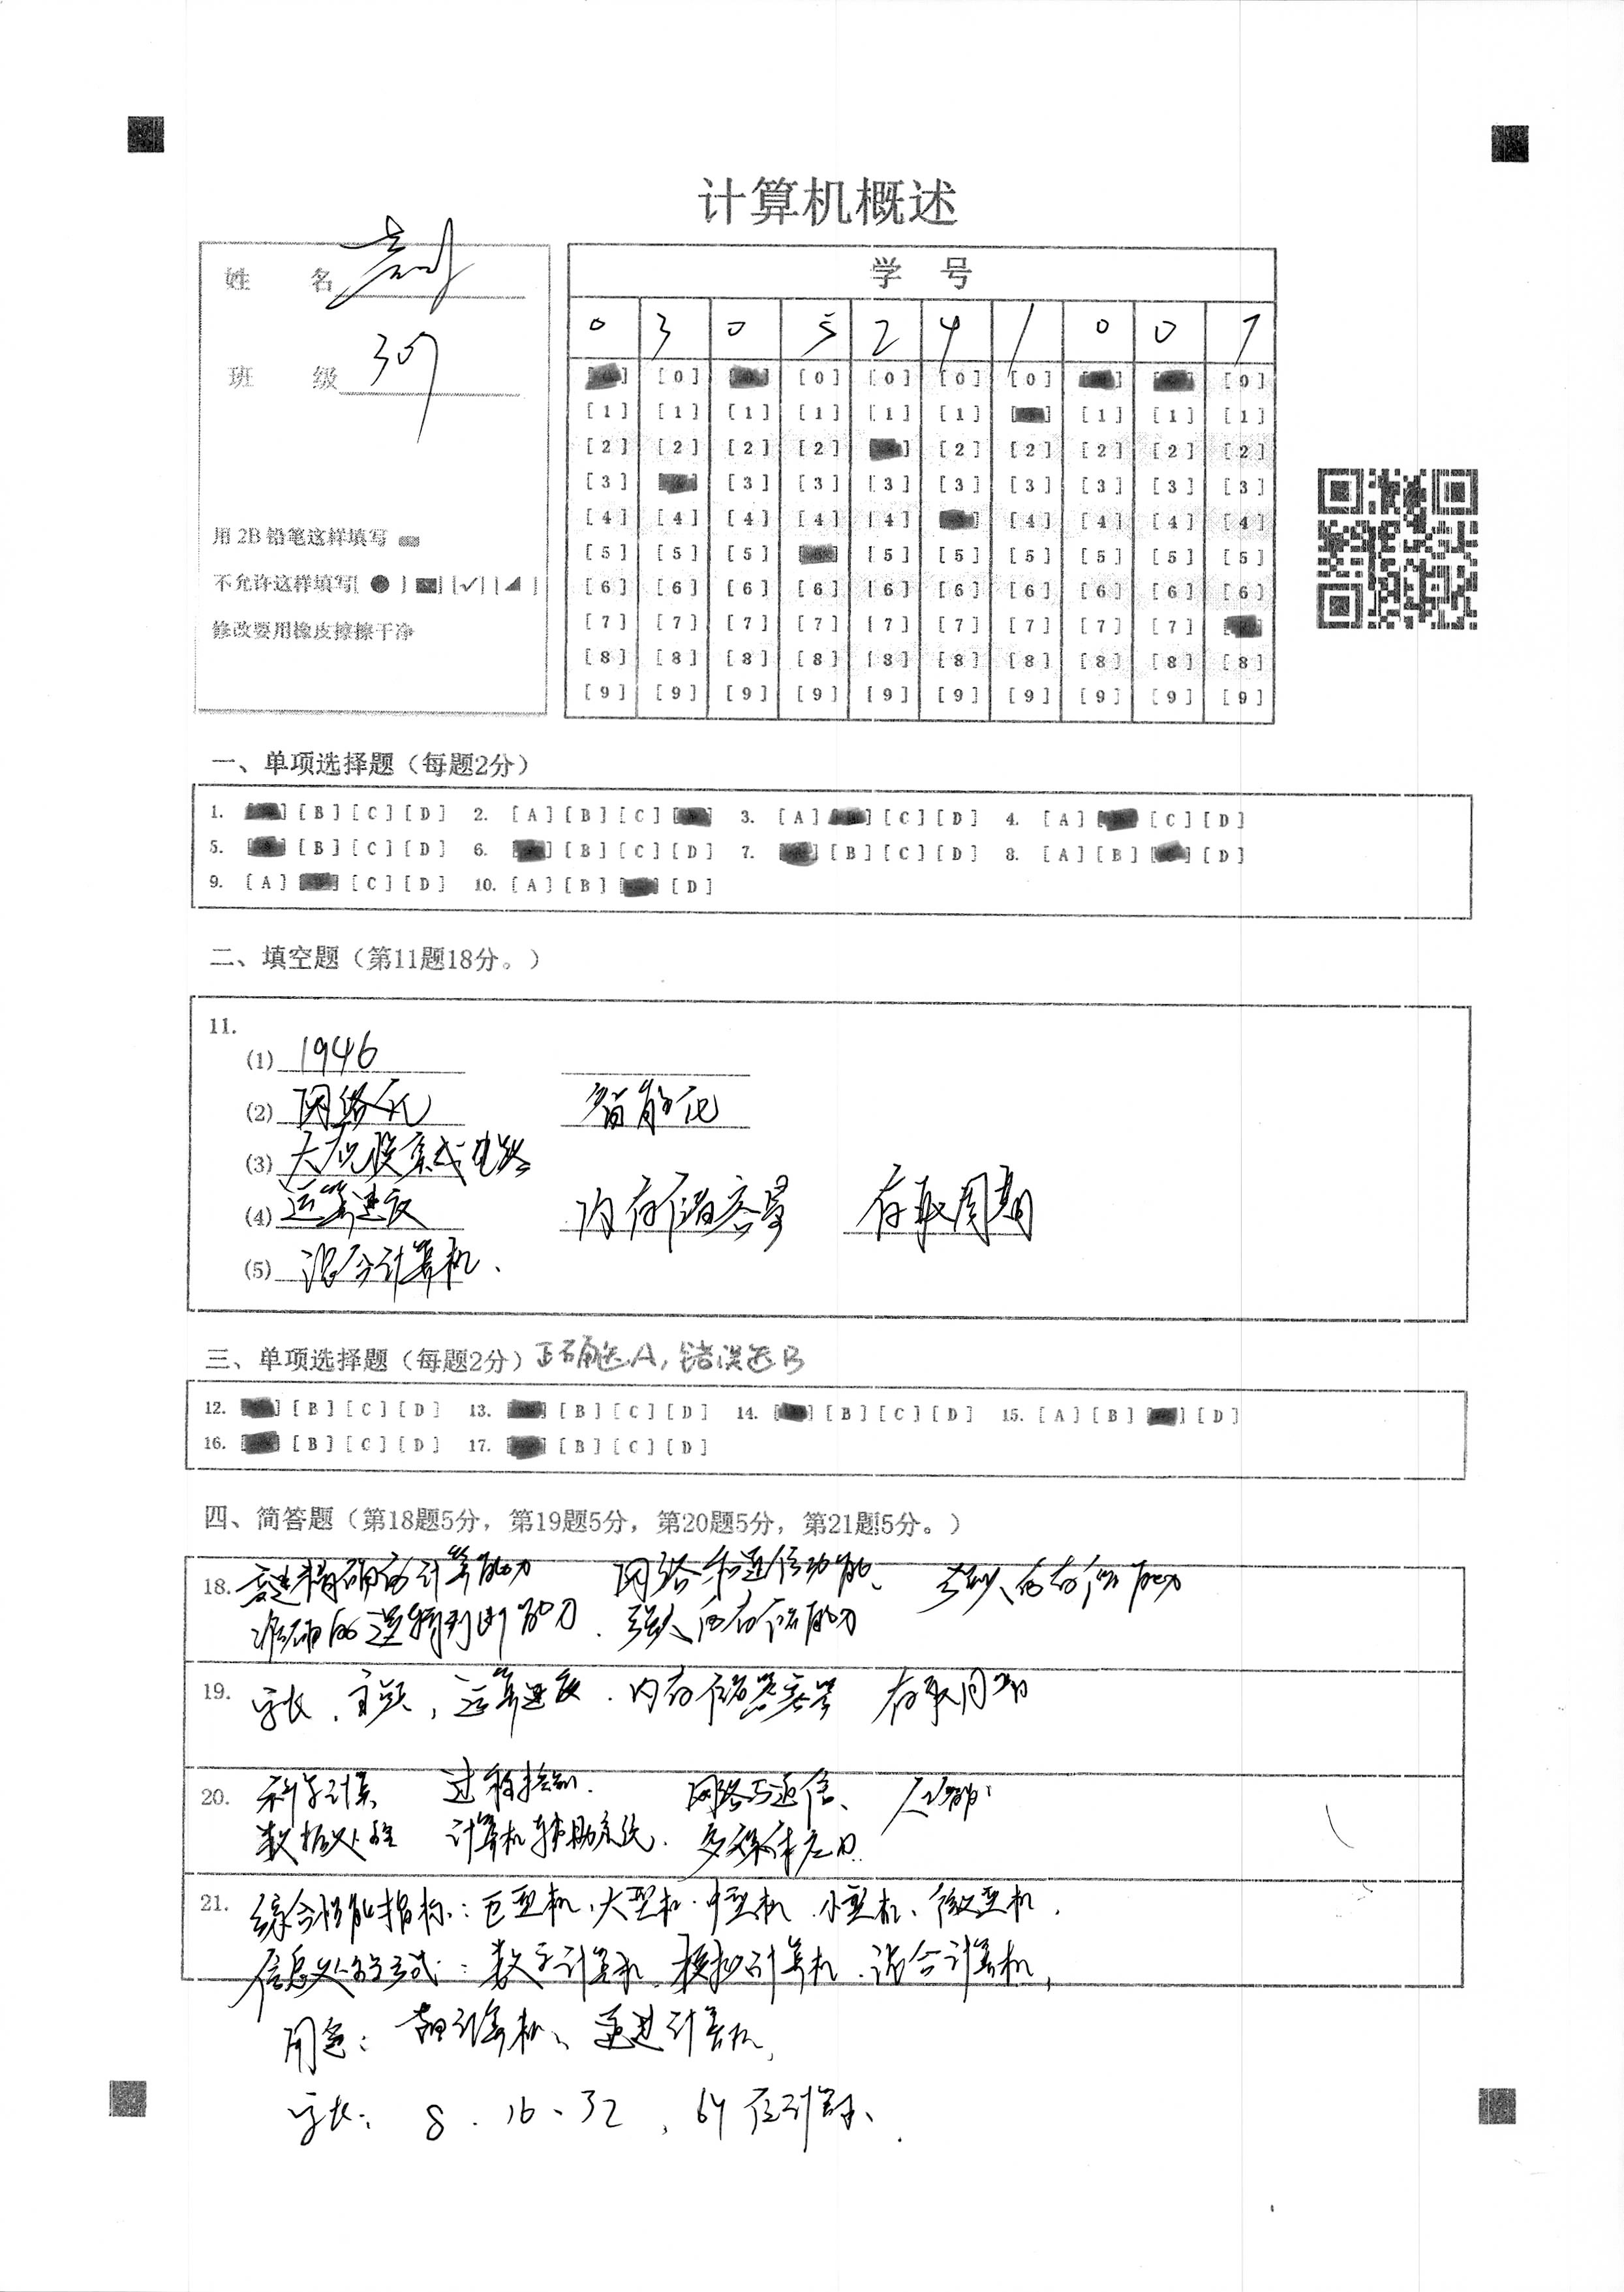 计算机概述
姓 名
班 级 307
用 2B 铅笔这样填写
不允许这样填写[ ● ] [ ■ ] [ ✓ ] [ ◢ ]
修改要用橡皮擦擦干净
学 号
0 3 0 5 2 4 1 0 0 7
[0] [0] [0] [0] [0] [0]
[1] [1] [1] [1] [1] [1] [1] [1] [1]
[2] [2] [2] [2] [2] [2] [2] [2] [2]
[3] [3] [3] [3] [3] [3] [3] [3] [3]
[4] [4] [4] [4] [4] [4] [4] [4] [4]
[5] [5] [5] [5] [5] [5] [5] [5] [5]
[6] [6] [6] [6] [6] [6] [6] [6] [6] [6]
[7] [7] [7] [7] [7] [7] [7] [7] [7]
[8] [8] [8] [8] [8] [8] [8] [8] [8] [8]
[9] [9] [9] [9] [9] [9] [9] [9] [9] [9]
一、单项选择题（每题2分）
1. [B] [C] [D] 2. [A] [B] [C] 3. [A] [C] [D] 4. [A] [C] [D]
5. [B] [C] [D] 6. [B] [C] [D] 7. [B] [C] [D] 8. [A] [B] [D]
9. [A] [C] [D] 10. [A] [B] [D]
二、填空题（第11题18分。）
11.
(1) 1946
(2) 网络化 智能化
(3) 大规模集成电路
(4) 运算速度 内存储容量 存取周期
(5) 混合计算机、
三、单项选择题（每题2分）正确选A，错误选B
12. [B] [C] [D] 13. [B] [C] [D] 14. [B] [C] [D] 15. [A] [B] [D]
16. [B] [C] [D] 17. [B] [C] [D]
四、简答题（第18题5分，第19题5分，第20题5分，第21题5分。）
18. 精确的计算能力 网络和通信功能、 强大的存储能力
准确的逻辑判断能力、强大的存储能力
19. 字长、主频，运算速度、内存储器容量 存取周期
20. 科学计算 过程控制、 网络与通信、 人工智能
数据处理 计算机辅助系统、 多媒体应用
21. 综合性能指标：巨型机、大型机、中型机、小型机、微型机、
信息处理方式：数字计算机、模拟计算机、混合计算机，
用途： 计算机、 计算机，
字长：8、16、32、64位计算机、